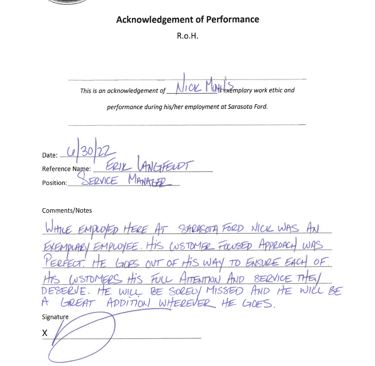 Acknowledgement of Performance
R.o.H.
This is an acknowledgement of Nick exemplary work ethic and
performance during his/her employment at Sarasota Ford.
Date: 6/30/22
Reference Name: ERIK LANGFELDT
Position: SERVICE MANAGER
Comments/Notes
WHILE EMPLOYED HERE AT SARASOTA FORD NICK WAS AN
EXEMPLARY EMPLOYEE. HIS CUSTOMER FOCUSED APPROACH WAS
PERFECT. HE GOES OUT OF HIS WAY TO ENSURE EACH OF
HIS CUSTOMERS HIS FULL ATTENTION AND SERVICE THEY
DESERVE. HE WILL BE SORELY MISSED AND HE WILL BE
A GREAT ADDITION WHEREVER HE GOES.
Signature
X